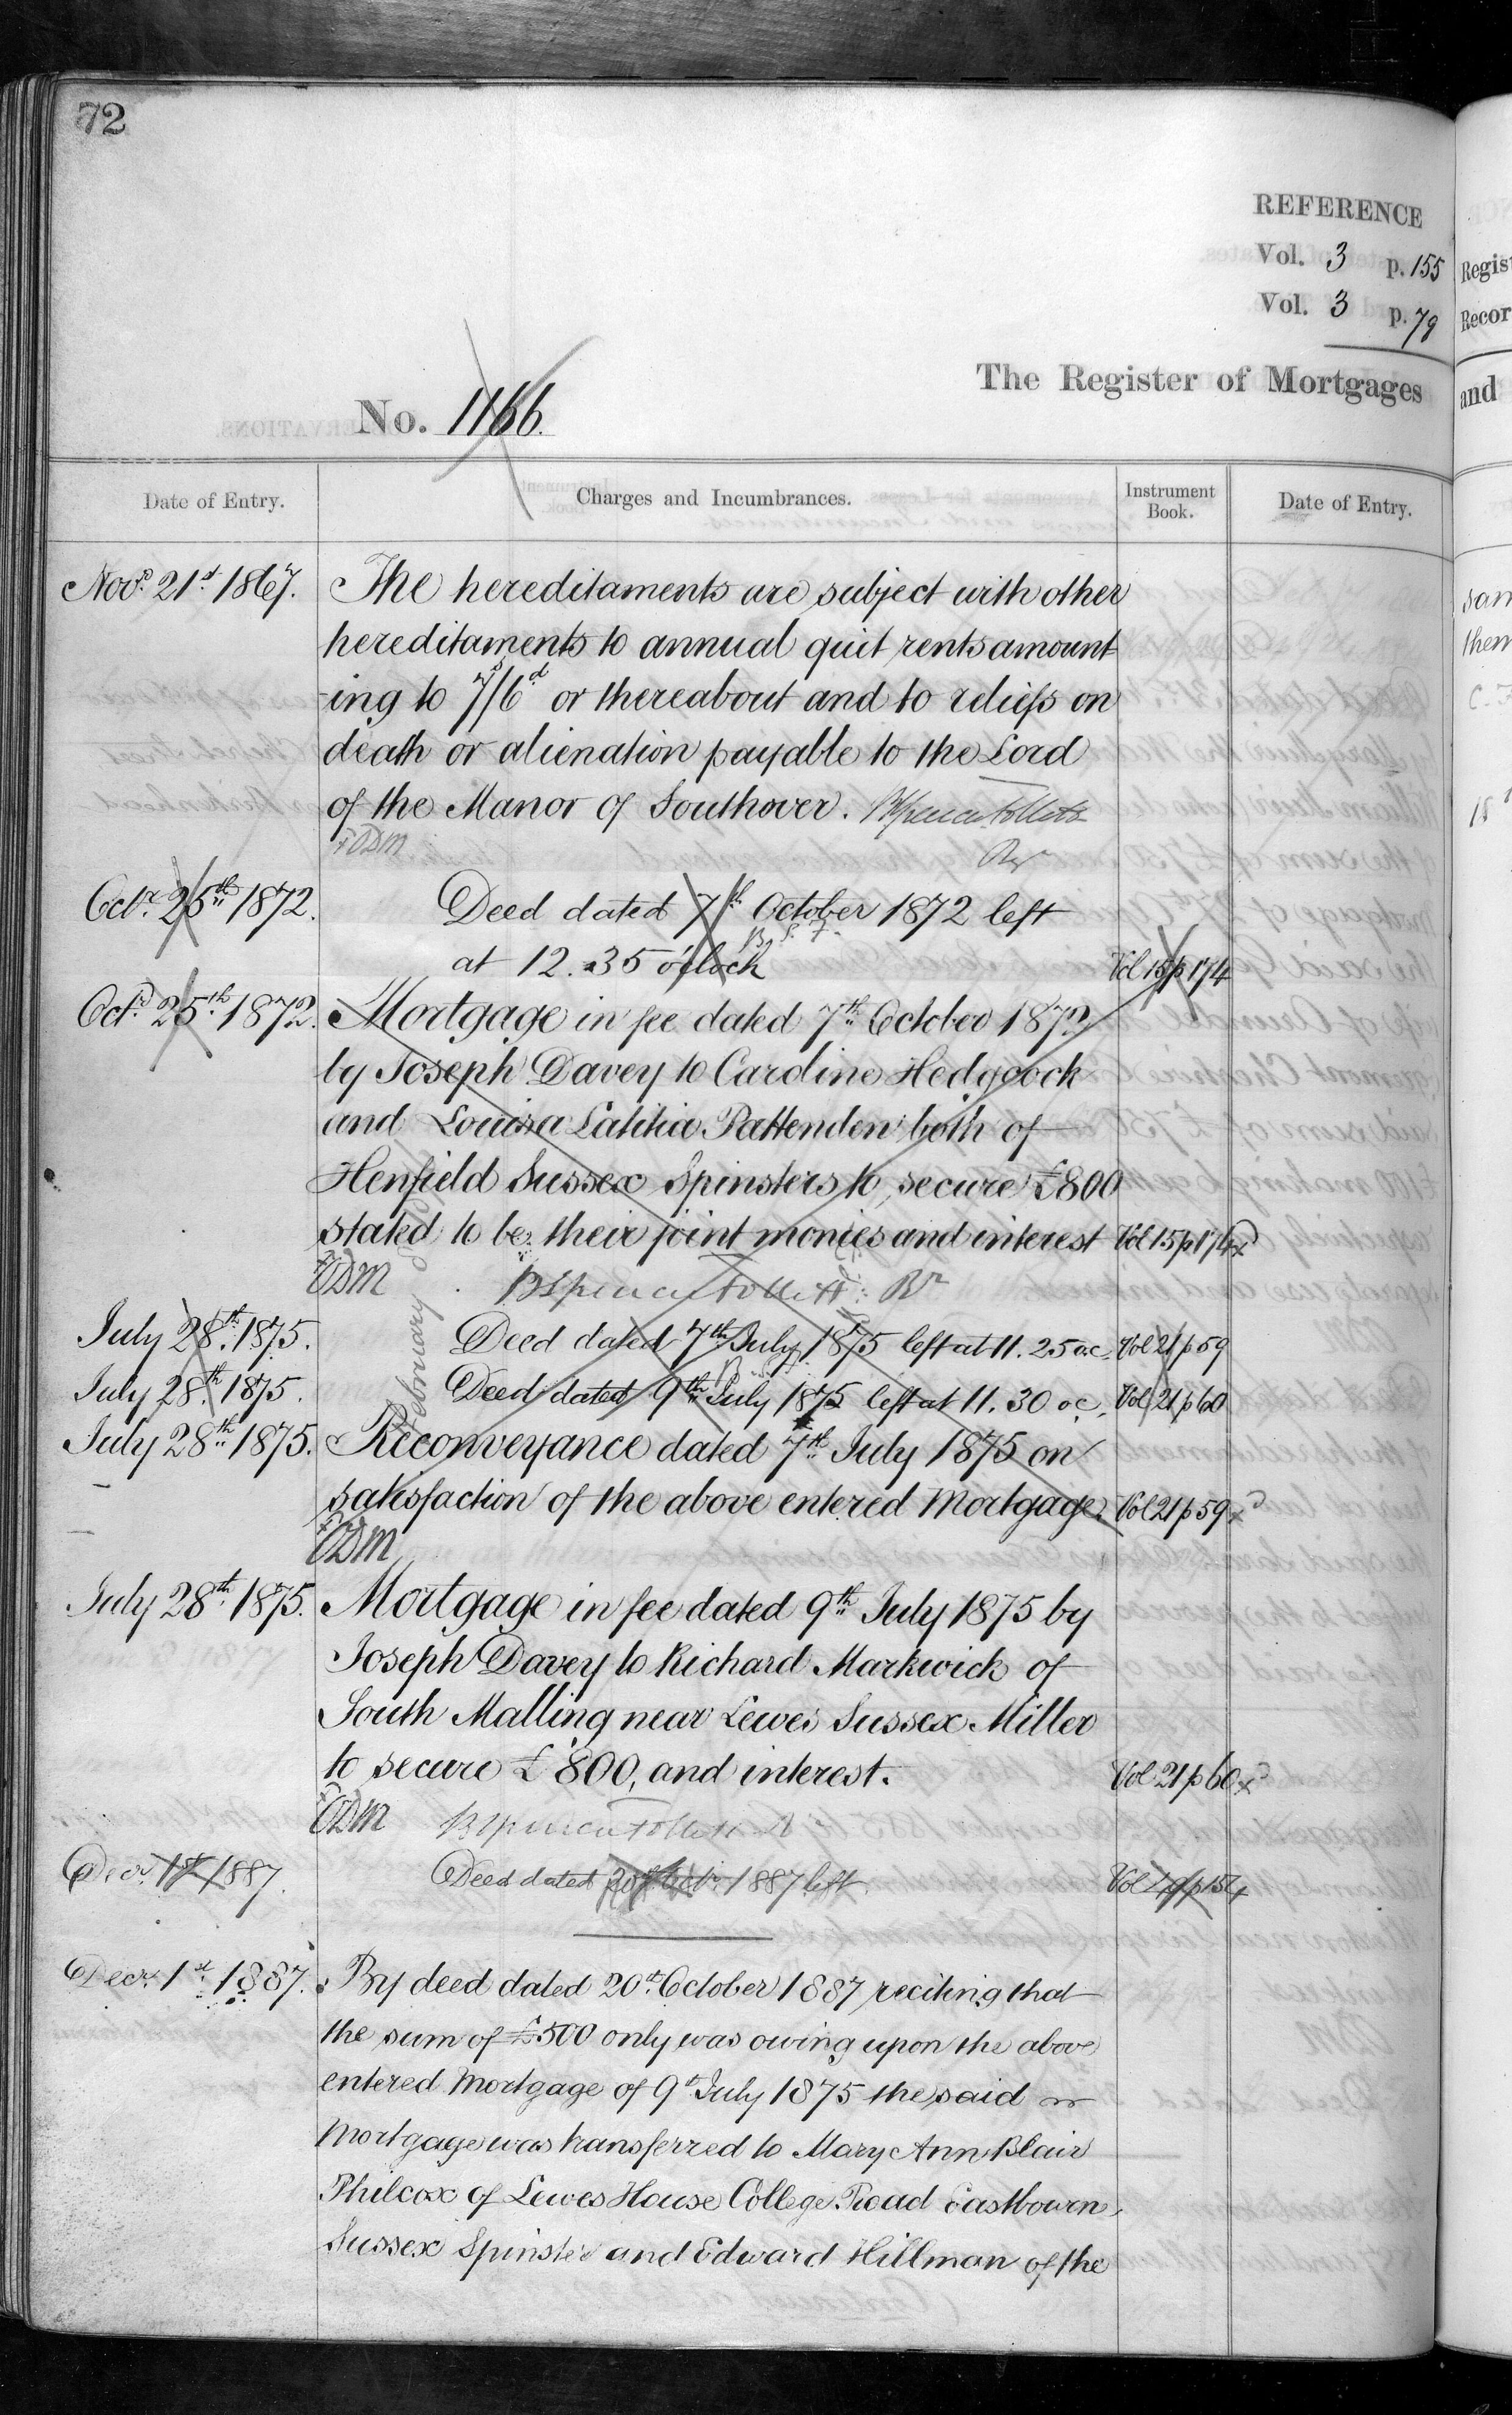 72
REFERENCE
Vol. 3 p. 155
Vol. 3 p. 79
The Register of Mortgages
No. 1166.
Date of Entry. Charges and Incumbrances. Instrument Book. Date of Entry.
Novr. 21st 1867. The hereditaments are subject with other
hereditaments to annual quit rents amount
-ing to 7s/6d or thereabout and to reliefs on
death or alienation payable to the Lord
of the Manor of Southover. B Spencer Follett
+ODM Regr
Octr. 25th 1872. Deed dated 7th October 1872 left
B. S. F.
at 12.35 o'clock Vol 15 p 174
Octr. 25th 1872. Mortgage in fee dated 7th October 1872
by Joseph Davey to Caroline Hedgcock
and Louisa Latitia Pattenden both of
Henfield Sussex Spinsters to secure £800
stated to be their joint monies and interest Vol 15 p 174
ODM B Spencer Follett Rr
July 28th 1875. Deed dated 7th July 1875 left at 11.25 oc. Vol 21 p 59
July 28th 1875. Deed dated 9th July 1875 left at 11.30 oc. Vol 21 p 60
February
July 28th 1875. Reconveyance dated 7th July 1875 on
satisfaction of the above entered Mortgage. Vol 21 p 59
ODM
July 28th 1875. Mortgage in fee dated 9th July 1875 by
Joseph Davey to Richard Markwick of
South Malling near Lewes Sussex Miller
to secure £800, and interest. Vol 21 p 60
ODM B Spencer Follett Rr
Decr. 1st 1887. Deed dated 20th Octr. 1887 left Vol p 154
Decr. 1st 1887. By deed dated 20th October 1887 reciting that
the sum of £500 only was owing upon the above
entered Mortgage of 9th July 1875 the said
Mortgage was transferred to Mary Ann Blair
Philcox of Lewes House College Road Eastbourne
Sussex Spinster and Edward Hillman of the
Regist
Recor
and
sam
them